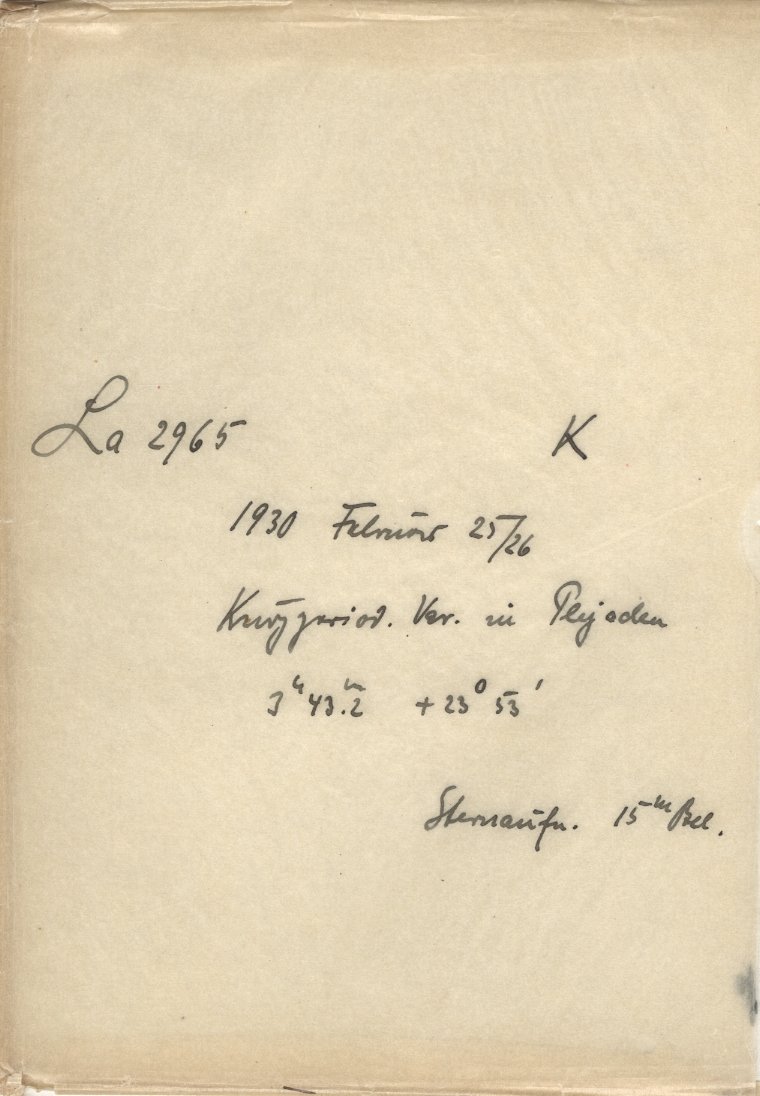 La 2965 K
1930 Februar 25/26
Kurzperiod. Ver. in Plejaden
3ʰ 43.ᵐ2 + 23⁰ 53'
Sternaufn. 15ᵐ Bel.